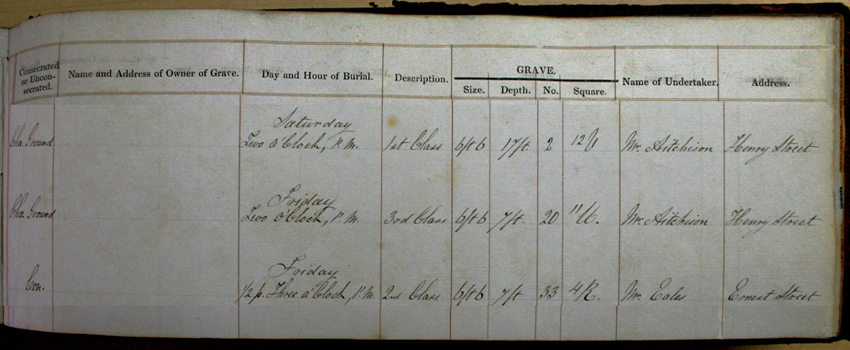 Consecrated or Uncon- secrated. Name and Address of Owner of Grave. Day and Hour of Burial. Description. GRAVE. Size. Depth. No. Square. Name of Undertaker. Address.
Saturday
Cha. Ground Two o'Clock, P.M. 1st Class 6ft 6 17ft 2 12 U Mr. Aitchison Henry Street
Friday
Cha. Ground Two o'Clock, P.M. 3rd Class 6ft 6 7ft. 20 11 U. Mr. Aitchison Henry Street
Friday
Con. 1/2 p. Three o'Clock, P.M. 2nd Class 6ft 6 7ft 33 4 R. Mr. Eales Ernest Street